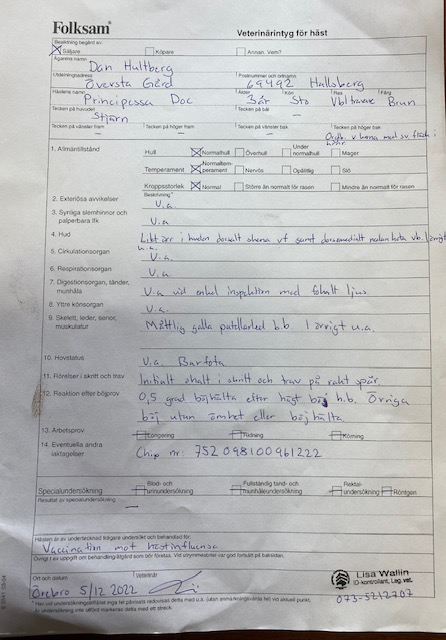 Folksam
Veterinärintyg för häst
Besiktning begärd av:
Säljare Köpare Annan. Vem?
Ägarens namn
Dan Hultberg
Utdelningsadress Postnummer och ortnamn
Översta Gård 69492 Hallsberg
Hästens namn Ålder Kön Ras Färg
Principessa Doc 3år Sto Vbl travare Brun
Tecken på huvudet Tecken på bål
Stjärn –
Tecken på vänster fram Tecken på höger fram Tecken på vänster bak Tecken på höger bak
– – –
1. Allmäntillstånd Hull Normalhull Överhull Under normalhull Mager
Temperament Normaltemperament Nervös Opålitlig Slö
Kroppsstorlek Normal Större än normalt för rasen Mindre än normalt för rasen
Beskrivning*
2. Exteriöra avvikelser u.a
3. Synliga slemhinnor och palperbara lfk u.a
4. Hud Litet ärr i huden dorsalt skena vf samt dorsomedialt nedan hota vb. I övrigt u.a.
5. Cirkulationsorgan u.a.
6. Respirationsorgan u.a
7. Digestionsorgan, tänder, munhåla u.a vid enkel inspektion med fokalt ljus.
8. Yttre könsorgan u.a.
9. Skelett, leder, senor, muskulatur Måttlig galla patellarled b.b I övrigt u.a.
10. Hovstatus u.a. Barfota
11. Rörelser i skritt och trav Initialt ohalt i skritt och trav på rakt spår.
12. Reaktion efter böjprov 0,5 grad böjhälta efter högt böj h.b. Övriga
böj utan ömhet eller böjhälta.
13. Arbetsprov Longering Ridning Körning
14. Eventuella andra iakttagelser Chip nr: 752098100961222
Specialundersökning Blod- och urinundersökning Fullständig tand- och munhåleundersökning Rektalundersökning Röntgen
Resultat av specialundersökning
–
Hästen är av undertecknad tidigare undersökt och behandlad för:
Vaccination mot hästinfluensa
Övrigt t ex uppgift om behandling/åtgärd som bör företas. Vid utrymmesbrist var god fortsätt på baksidan.
Ort och datum Veterinär
Örebro 5/12 2022
Lisa Wallin
ID-kontrollant, Leg. vet.
073-5212707